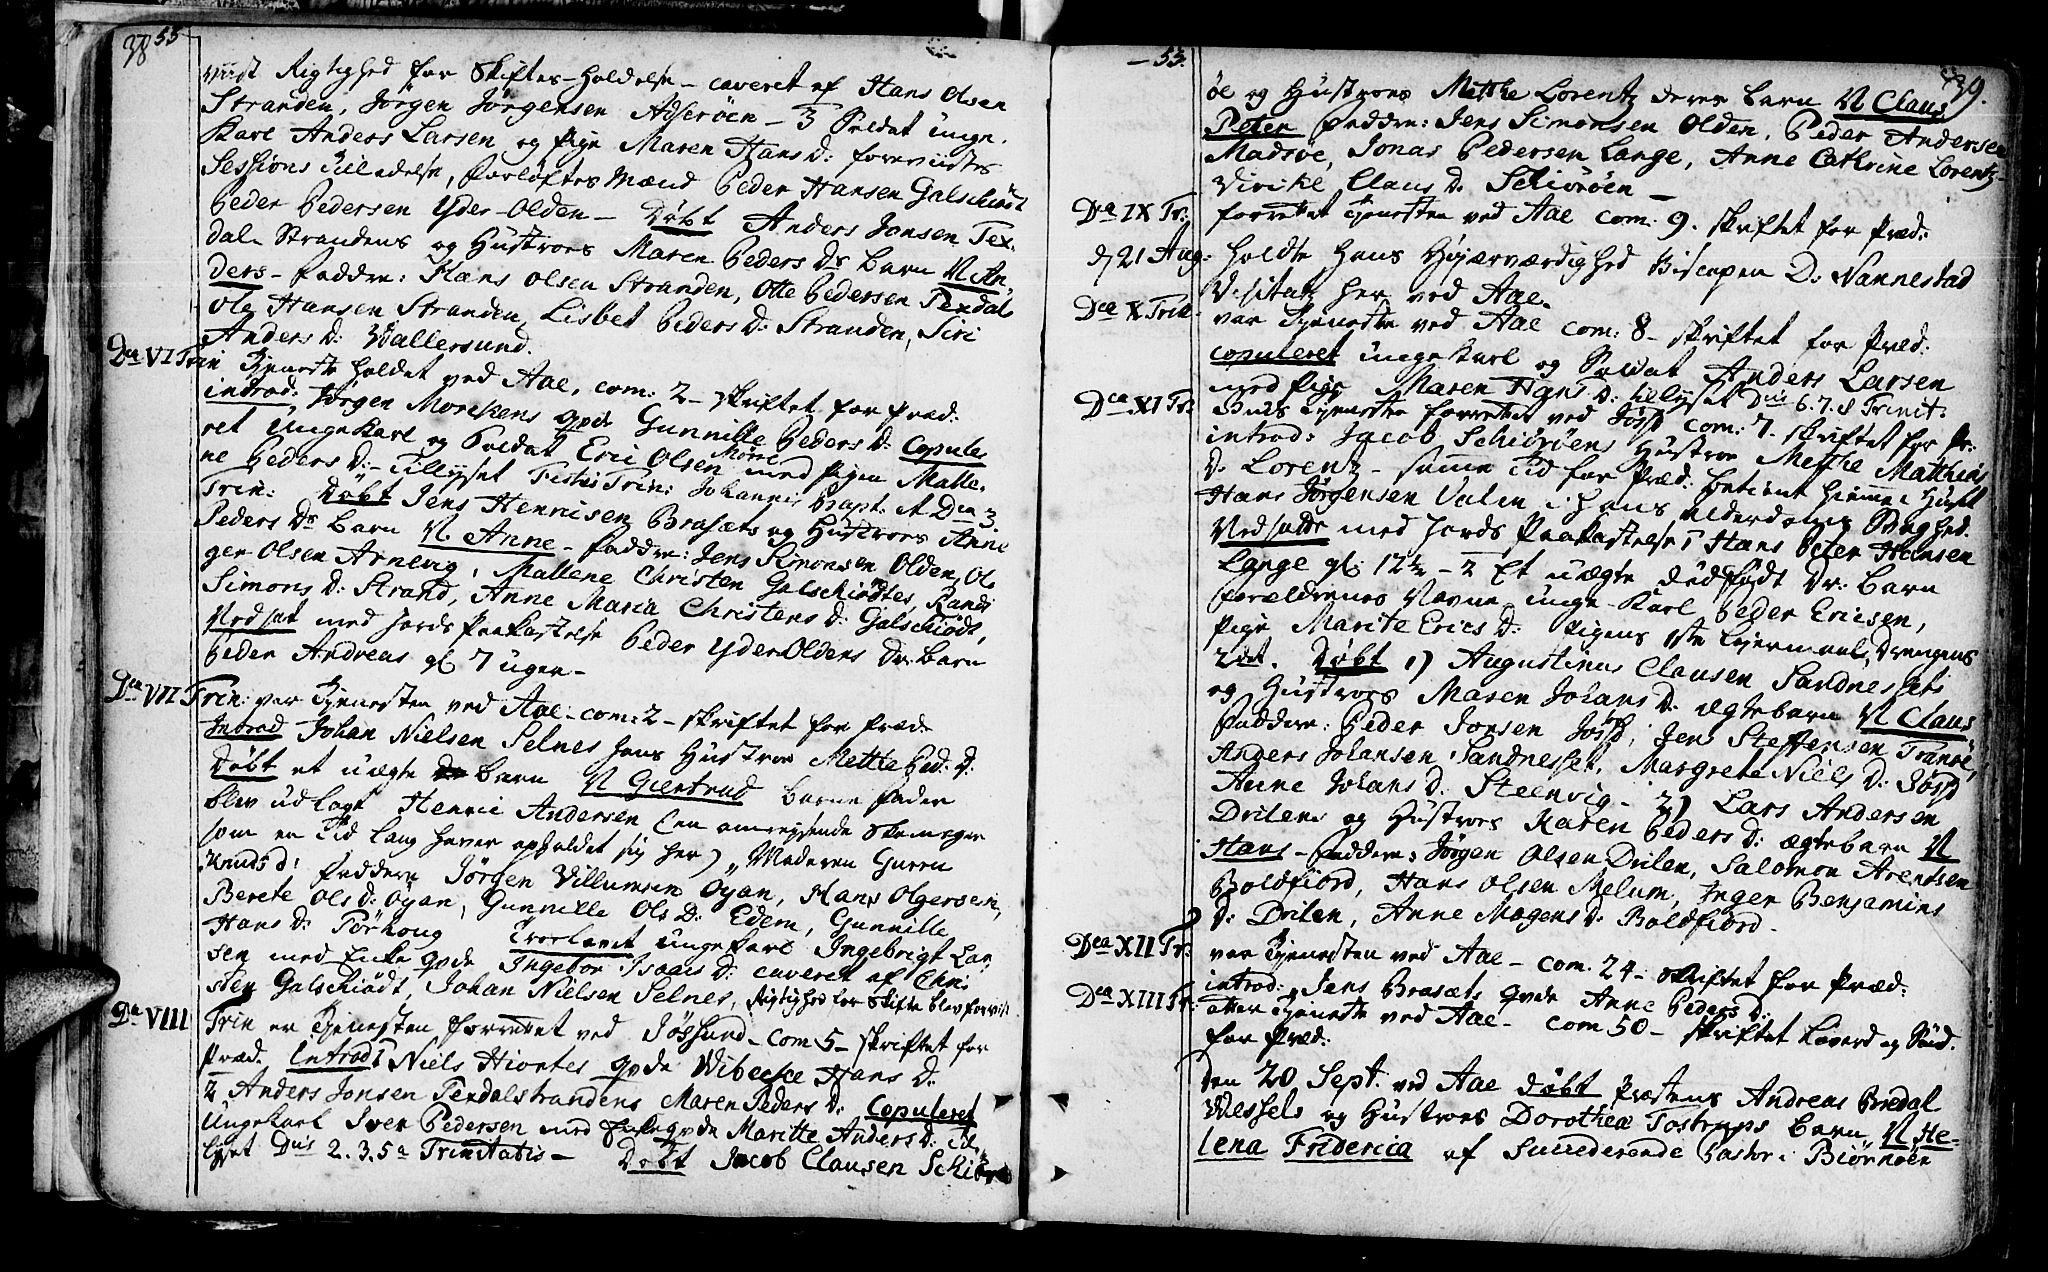 38 55
viist Rigtighed for Skiftes-Holdelse – caveret af Hans Olsen
Stranden, Jörgen Jörgensen Adseröen – 3 Soldat unge.
Karl Anders Larsen og Pige Maren Hans D: foreviiste
Sessions Tilladelse, Forlöftes Mænd Peder Hansen Galschiödt
Peder Pedersen Yder-Olden – Döbt Anders Jonsen Tex-
dal Strandens og Hustroes Maren Peders Ds Barn N An,
ders – Faddre: Hans Olsen Stranden, Otte Pedersen Texdal
Ole Hansen Stranden, Lisbet Peders D: Stranden, Siri
Anders D: Wallersund.
Dca VI Trin Tjeneste holdet ved Aae, com: 2 – skriftet for Præd:
introd: Jörgen Morckens qvde Gunnille Peders D: Copule,
ret Ungekarl og Soldat Eric Olsen Moren med Pigen Malle,
ne Peders D: – Tillyset Festis Trin: Johannis Bapt. et Dca 3.
Trin: Döbt Jens Hennisen Brasæts og Hustroes Anne
Peders Ds Barn N Anne – Faddre: Jens Simonsen Olden, Ol
ger Olsen Arnevig, Mallene Christen Galschiödtes, Randi
Simons D: Strand, Anne Maria Christens D: Galschiödt,
Nedsat med Jords Paakastelse Peder Yder Oldens Dr: Barn
Peder Andreas gl 7 uger –
Dca VII Trin: var Tjenesten ved Aae – com: 2 – skriftet for Præd:
Introd Johan Nielsen Selnes hans Hustroe Mette Ped: D:
Döbt et uægte Barn N Giertrud Barne Fader
blev udlagt Henric Andersen (en omreysende Skomager
som en Tid lang haver opholdet sig her) „ Moderen Guren
Knuds D: Faddere Jörgen Villumsen Öyan, Hans Olgersen,
Berete Ols D: Öyan, Gunnille Ols D: Edem, Gunnille
Hans D: Pörhoug Troelovet ungekarl Ingebrigt Lar
sen med Enke qvde Ingebor Isaacs D: caveret af Chri
sten Galschiödt, Johan Nielsen Selnes, Rigtighed for Skifte blev forviist
Dca VIII Trin er Tjenesten forrettet ved Jössund – Com 5 – skriftet for
Præd. Introd: 1 Niels Hiortes qvde Wibecke Hans D:
2 Anders Jonsen Texdalstrandens Maren Peders D: Copuleret
Ungekarl Iver Pedersen med Enkeqvde Maritte Anders D: til,
lyset Dnis 2. 3. 5a Trinitatis – Döbt Jacob Clausen Schiör
– 55.
39.
öe og Hustroes Metthe Lorentz deres Barn N Claus
Peter Faddre: Jens Simonsen Olden, Peder Andersen
Madsöe, Jonas Pedersen Lange, Anne Cathrine Lorentz
Vivike Claus D: Schiöröen –
Dca IX Tr: forrettet Tjenesten ved Aae com: 9. skriftet for Præd:
d 21 Aug: holdte Hans Höjærværdighed Biscopen D: Nannestad
Visitatz her ved Aae.
Dca X Trin: var Tjeneste ved Aae com: 8 – skriftet for Præd:
copuleret ungekarl og Soldat Anders Larsen
med Pige Maren Hans D: tillyset Dnis 6. 7. 8 Trinit:
Dca XI Tr: Tjeneste forrettet ved Jössd com: 7. skriftet for Pr:
introd: Jacob Schiöröens Hustroe Metthe Matthias
D: Lorentz – samme Tid for Præd. betient hiemme i Huset
Hans Jörgensen Valen i hans Alderdoms Svaghed.
Nedsatte med Jords Paakastelse 1 Hans Peter Hansen
Lange gl: 12½ – 2 Et uægte dödfödt Dr: Barn
Forældrenes Navne unge-Karl Peder Ericsen,
Pige Marite Erics D: Pigens 1ste Leiermaal, Drengens
2det. Döbt 1) Augustinus Clausen Sandnessets
og Hustroes Maren Johans D: ægtebarn N Claus
Faddere: Peder Jonsen Jössd, Jens Steffensen Tranöe,
Anders Johansen Sandnesset, Margrete Niels D: Jössd
Anne Johans D: Steenvig – 2) Lars Andersen
Drilens og Hustroes Karen Peders D: ægtebarn N
Hans – Faddere: Jörgen Olsen Drilen, Salomon Arentsen
Boldfiord, Hans Olsen Melum, Inger Benjamins
D: Drilen, Anne Mogens D: Boldfiord.
Dca XII Tr: var Tjenesten ved Aae – com. 24 – skriftet for Præd:
introd: Jens Brasæts qvde Anne Peders D:
Dca XIII Tr: atter Tjeneste ved Aae – com 50 – skriftet Löverd og Sönd.
for Præd:
Den 20 Sept. ved Aae döbt Præstens Andreas Bredal
Wessels og Hustroes Dorothea Tostrups Barn N He-
lena Fridericia af Sunederende Pastor i Biörnöer